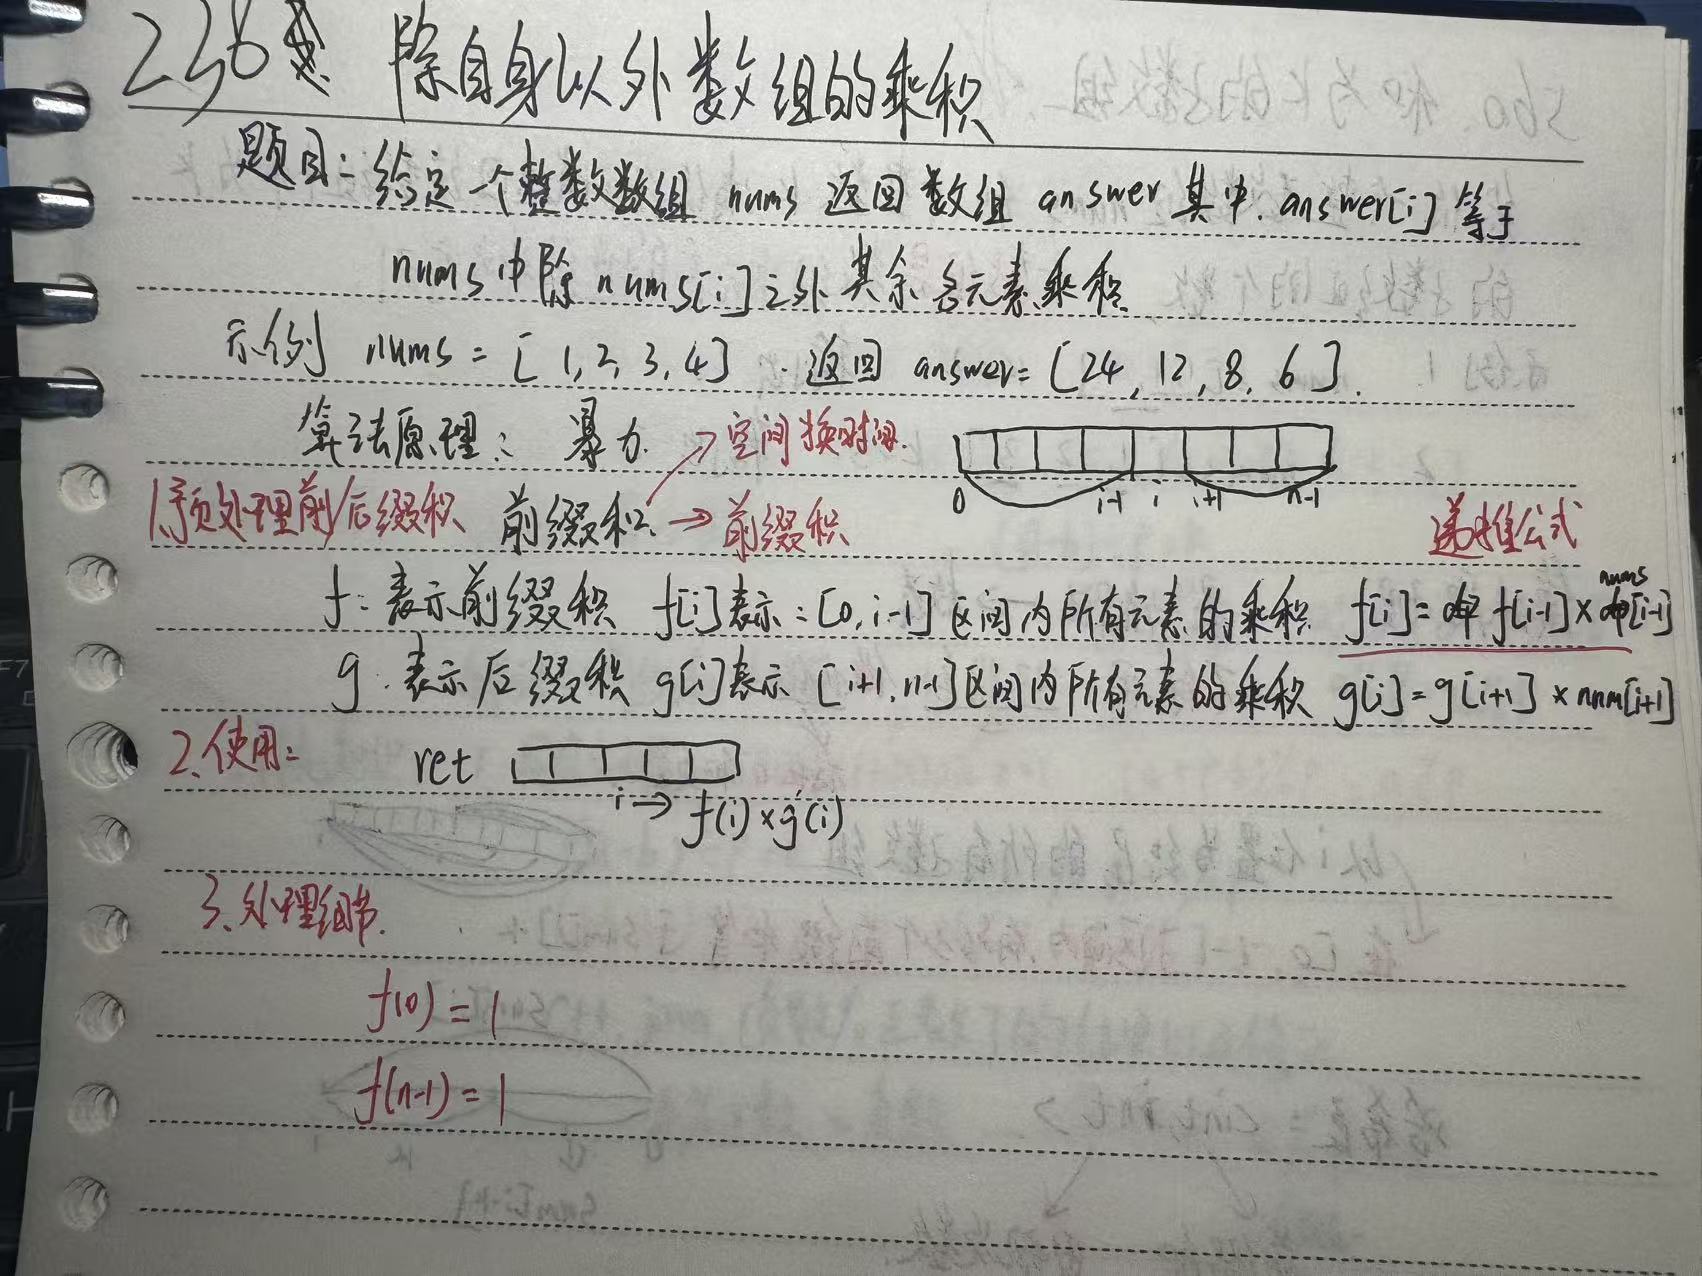 238 除自身以外数组的乘积
题目：给定一个整数数组 nums 返回数组 answer 其中. answer[i] 等于
nums中除 nums[i]之外其余各元素乘积
示例 nums = [1,2,3,4] . 返回 answer= [24,12,8,6].
算法原理：暴力. →空间换时间.
0 i-1 i i+1 n-1
1.预处理前/后缀积 前缀和 → 前缀积 递推公式
f: 表示前缀积 f[i]表示:[0,i-1]区间内所有元素的乘积 f[i]= f[i-1]×nums[i-1]
g: 表示后缀积 g[i]表示 [i+1,n-1]区间内所有元素的乘积 g[i]=g[i+1]×num[i+1]
2.使用: ret
i→ f(i)×g(i)
3.处理细节.
f(0)=1
f(n-1)=1